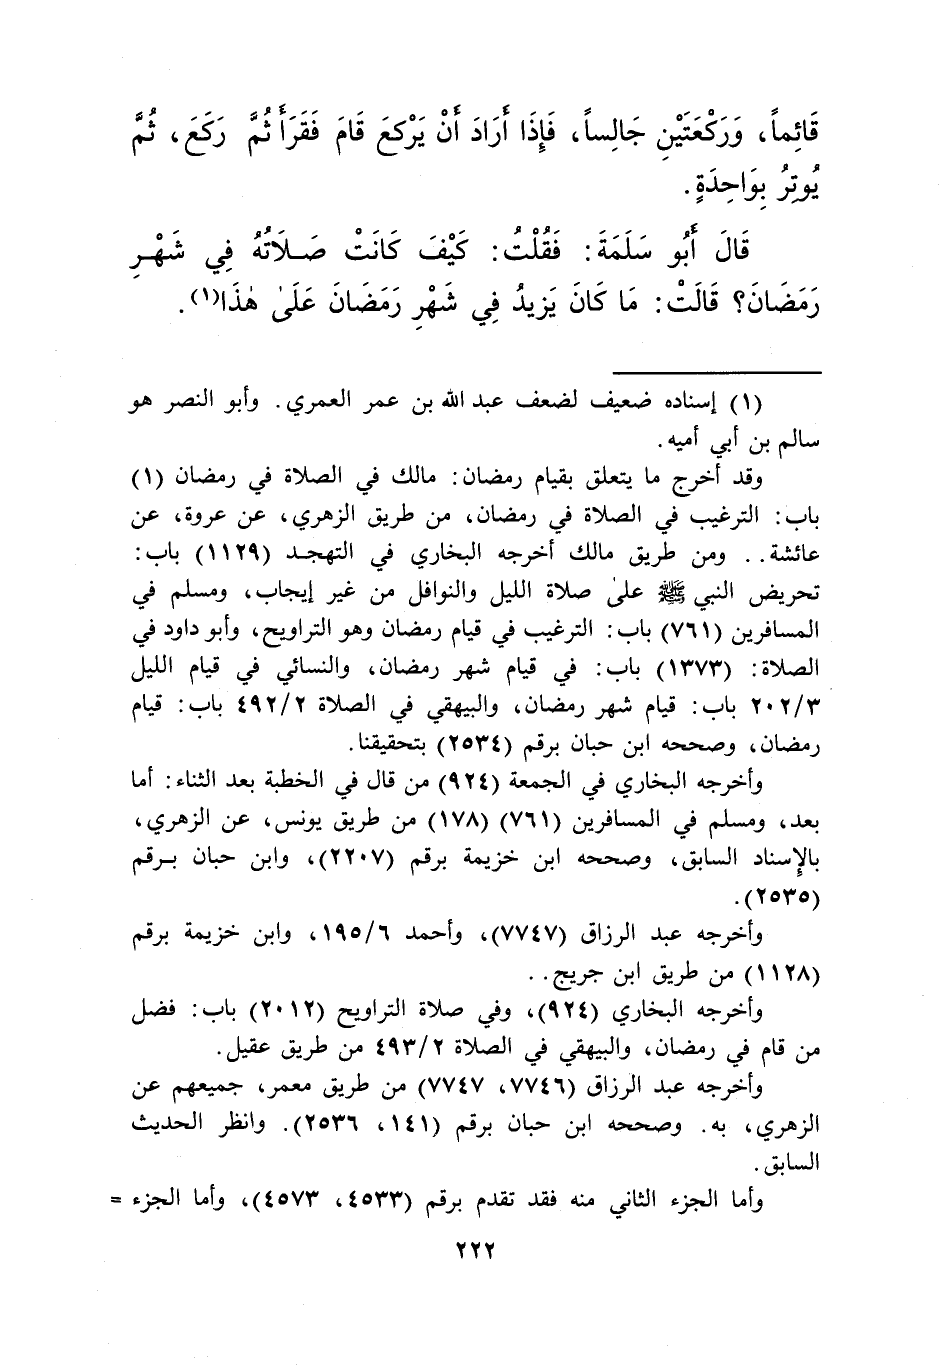 قَائِماً، وَرَكْعَتَيْنِ جَالِساً، فَإِذَا أَرَادَ أَنْ يَرْكَعَ قَامَ فَقَرَأَ ثُمَّ رَكَعَ، ثُمَّ
يُوتِرُ بِوَاحِدَةٍ.
قَالَ أَبُو سَلَمَةَ: فَقُلْتُ: كَيْفَ كَانَتْ صَلَاتُهُ فِي شَهْرِ
رَمَضَانَ؟ قَالَتْ: مَا كَانَ يَزِيدُ فِي شَهْرِ رَمَضَانَ عَلَىٰ هٰذَا(١).
(١) إسناده ضعيف لضعف عبد الله بن عمر العمري. وأبو النصر هو
سالم بن أبي أميه.
وقد أخرج ما يتعلق بقيام رمضان: مالك في الصلاة في رمضان (١)
باب: الترغيب في الصلاة في رمضان، من طريق الزهري، عن عروة، عن
عائشة.. ومن طريق مالك أخرجه البخاري في التهجد (١١٢٩) باب:
تحريض النبي ﷺ علىٰ صلاة الليل والنوافل من غير إيجاب، ومسلم في
المسافرين (٧٦١) باب: الترغيب في قيام رمضان وهو التراويح، وأبو داود في
الصلاة: (١٣٧٣) باب: في قيام شهر رمضان، والنسائي في قيام الليل
٢٠٢/٣ باب: قيام شهر رمضان، والبيهقي في الصلاة ٤٩٢/٢ باب: قيام
رمضان، وصححه ابن حبان برقم (٢٥٣٤) بتحقيقنا.
وأخرجه البخاري في الجمعة (٩٢٤) من قال في الخطبة بعد الثناء: أما
بعد، ومسلم في المسافرين (٧٦١) (١٧٨) من طريق يونس، عن الزهري،
بالإسناد السابق، وصححه ابن خزيمة برقم (٢٢٠٧)، وابن حبان برقم
(٢٥٣٥).
وأخرجه عبد الرزاق (٧٧٤٧)، وأحمد ١٩٥/٦، وابن خزيمة برقم
(١١٢٨) من طريق ابن جريج..
وأخرجه البخاري (٩٢٤)، وفي صلاة التراويح (٢٠١٢) باب: فضل
من قام في رمضان، والبيهقي في الصلاة ٤٩٣/٢ من طريق عقيل.
وأخرجه عبد الرزاق (٧٧٤٦، ٧٧٤٧) من طريق معمر، جميعهم عن
الزهري، به. وصححه ابن حبان برقم (١٤١، ٢٥٣٦). وانظر الحديث
السابق.
وأما الجزء الثاني منه فقد تقدم برقم (٤٥٣٣، ٤٥٧٣)، وأما الجزء =
٢٢٢